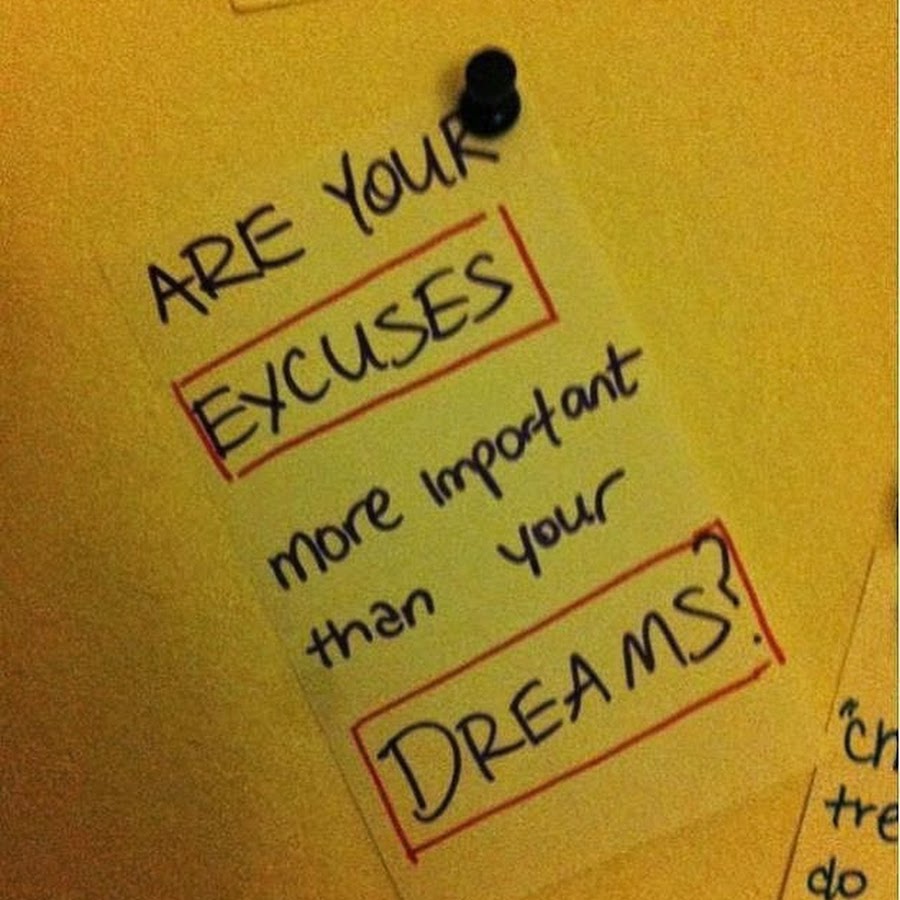 ARE YOUR
EXCUSES
more Important
than your
DREAMS?
tre
do